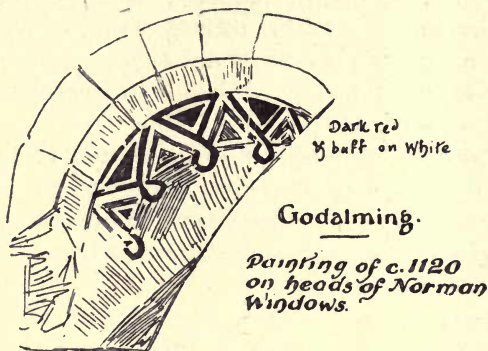 Dark red
& buff on White
Godalming.
Painting of c.1120
on heads of Norman
Windows.